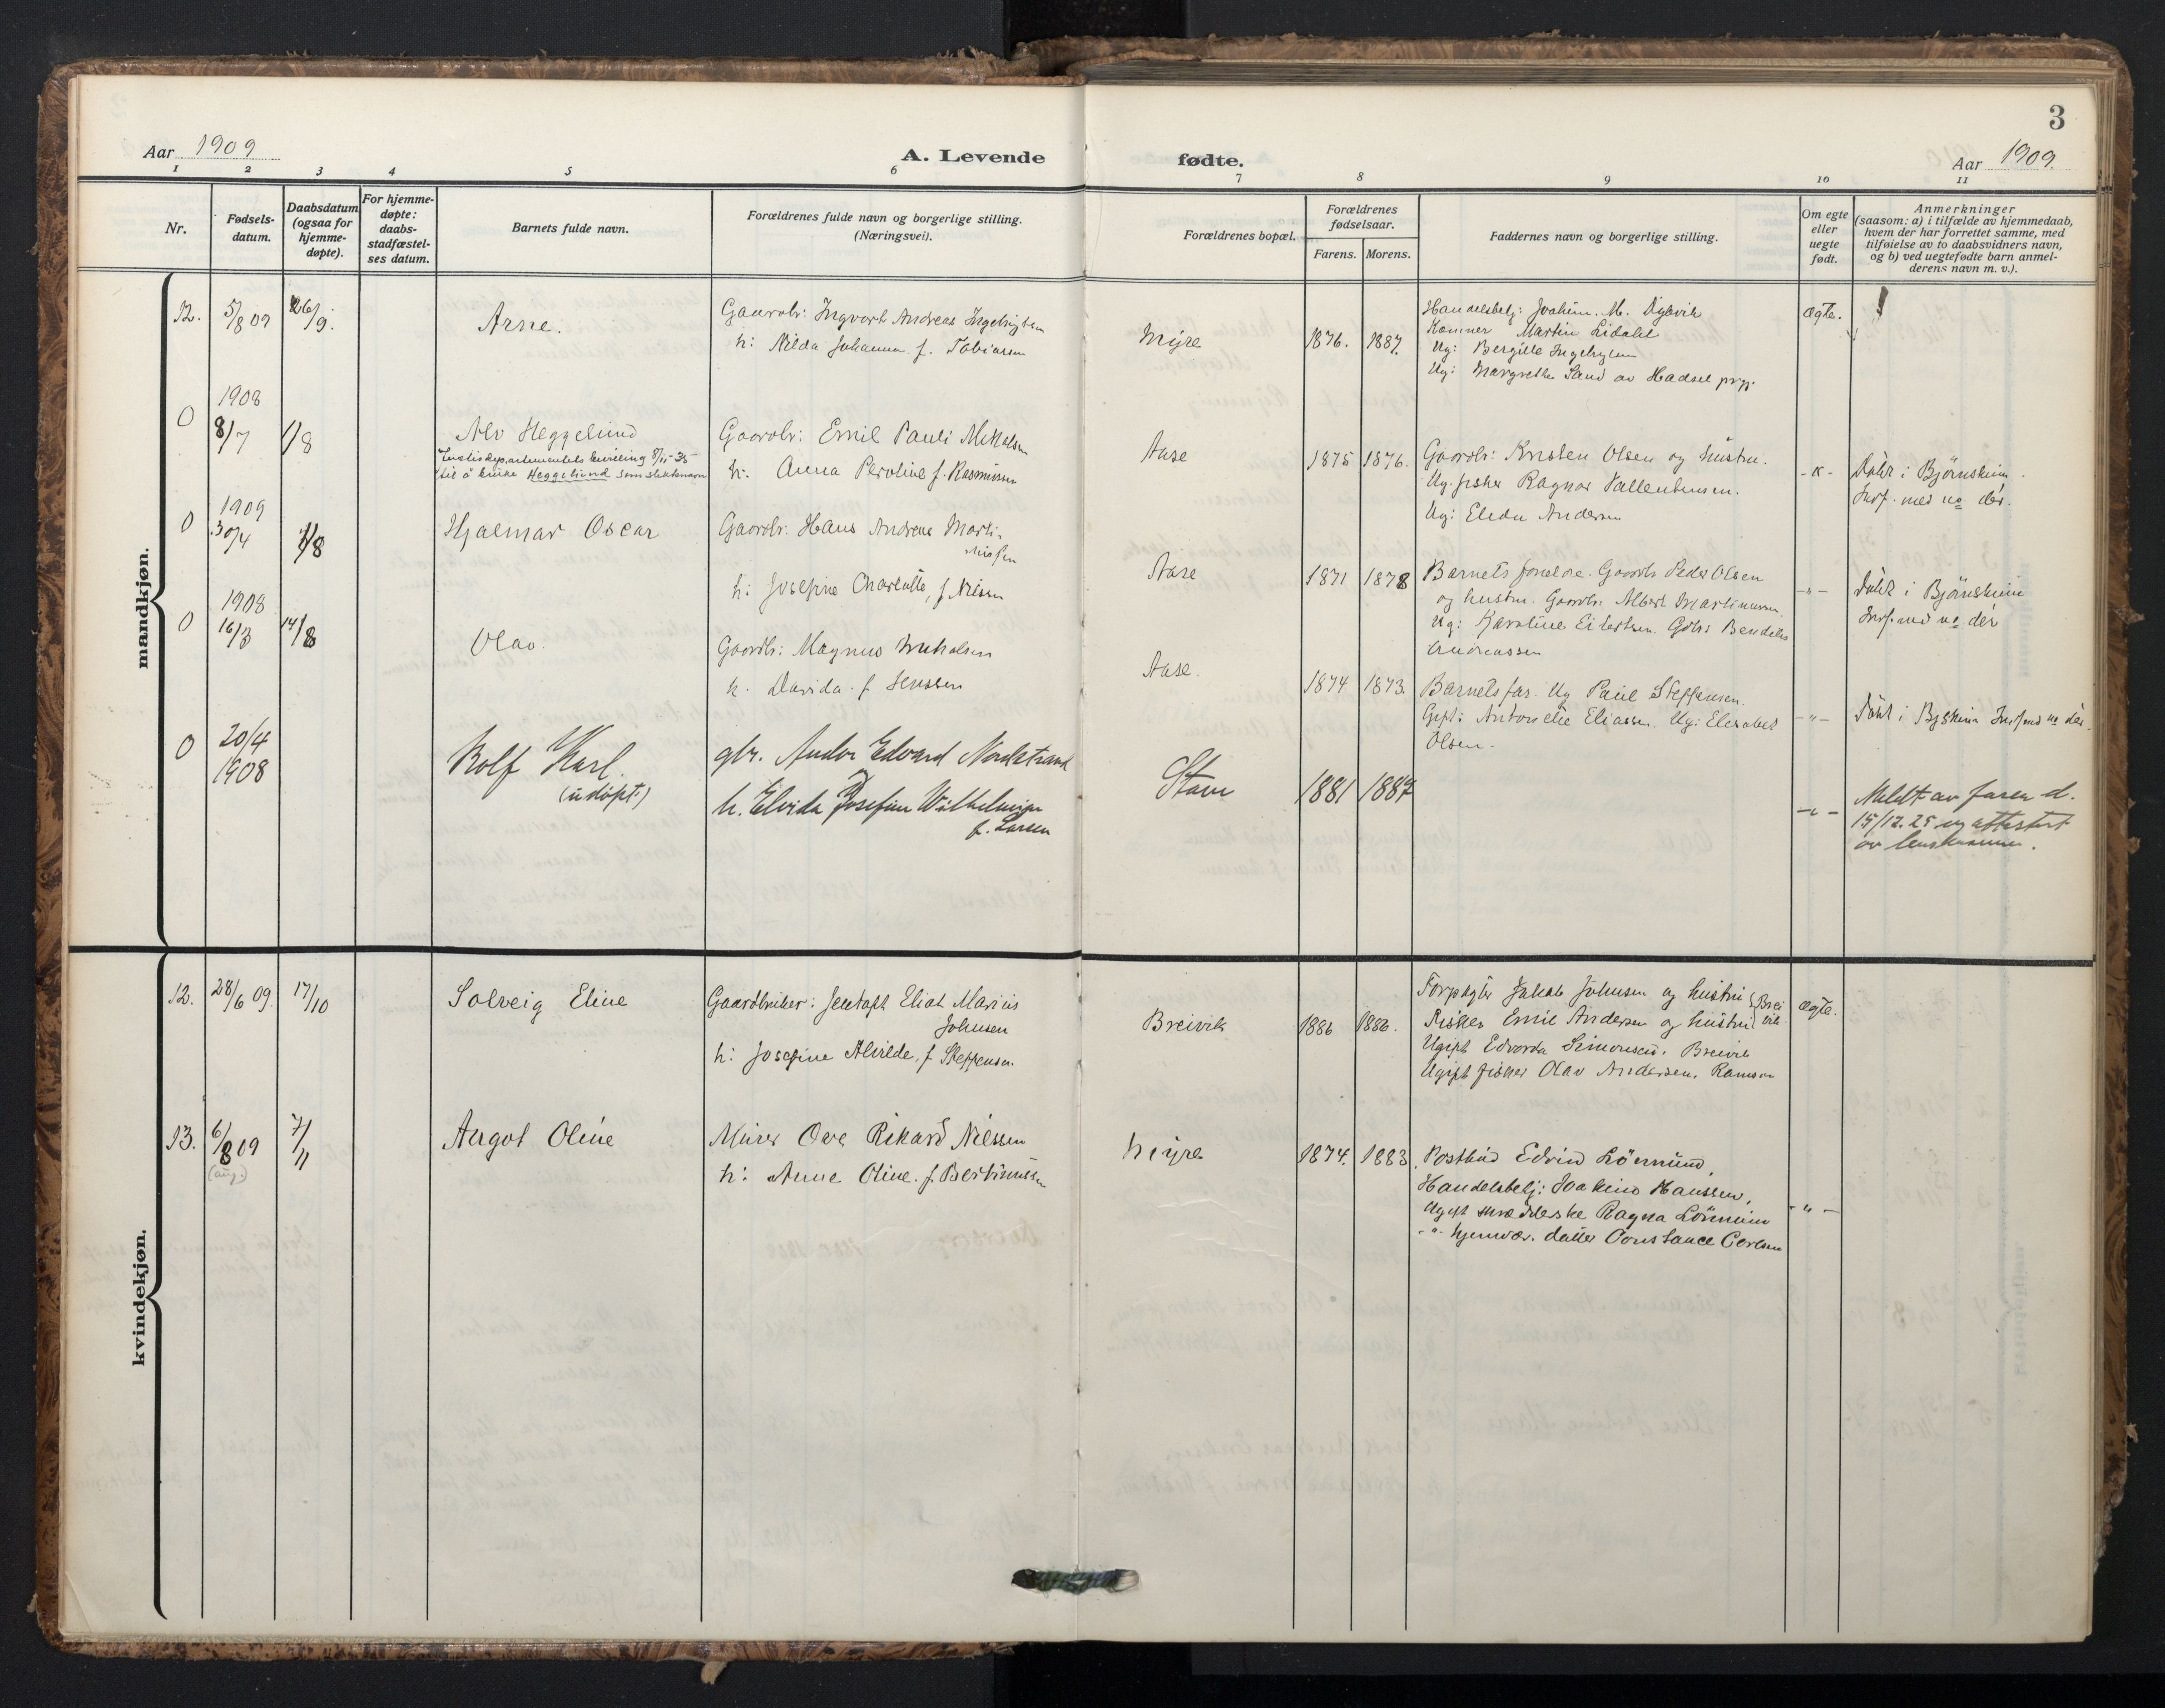 3
Aar 1909
A. Levende
fødte.
Aar 1909.
1 2 3 4 5 6 7 8 9 10 11
Nr.
Fødsels-
datum.
Daabsdatum
(ogsaa for
hjemme-
døpte).
For hjemme-
døpte:
daabs-
stadfæstel-
ses datum.
Barnets fulde navn.
Forældrenes fulde navn og borgerlige stilling.
(Næringsvei).
Forældrenes bopæl.
Forældrenes
fødselsaar.
Farens. Morens.
Faddernes navn og borgerlige stilling.
Om egte
eller
uegte
født.
Anmerkninger
(saasom: a) i tilfælde av hjemmedaab,
hvem der har forrettet samme, med
tilføielse av to daabsvidners navn,
og b) ved uegtefødte barn anmel-
derens navn m. v.).
mandkjøn.
12. 5/8 09 26/9. Arne.
Gaardbr: Ingvart Andreas Ingebrigtsen
h: Hilda Johanna f. Tobiassen
Myre 1876. 1887.
Handelsbetj: Joakim. M. Dybvik
Martin Lidahl
Ug: Bergitte Ingebrigtsen
Ug: Margrethe Sand av Hadsel prgj.
Ægte.
0 1908
8/7 1/8 Alv Heggelund
Justisdepartementets bevilling 8/11-35
til å bruke Heggelund som slektsnavn
Gaardbr: Emil Pauli Mikkelsen
h. Anna Peroline f. Rasmussen
Aase 1875 1876.
Gaardbr: Kristen Olsen og hustru.
Ug. fisker Ragnar
Ug: Elida Andersen
-"- Døbt i Bjørnskinn.
Indf. med no der.
0 1909
30/4 1/8 Hjalmar Oscar
Gaardbr. Hans Andreas Marti-
nussen
h: Josefine Charlotte, f. Nilssen
Aase 1871 1878
Barnets foreldre. Gaardb Peder Olsen
og hustru. Gaardbr. Albert Martinussen
Ug: Karoline Eilertsen. Gdbr: Bendiks
Andreassen
-"- Døbt i Bjørnskinn
Indf. med no der
0 1908
16/3 14/8 Olav.
Gaardbr: Magnus
h. Davida. f Jenssen
Aase. 1874 1873.
Barnets far. Ug Paul Steffensen.
Gift: Antonette Eliassen. Ug: Elisabet
Olsen.
-"- Døbt i Bjskinn Indf med no der.
0 20/4
1908
Rolf Karl.
(udøpt)
gbr. Andor Edvard Nordstrand
h. Elvida Josefine Wilhelmine
f. Larsen
Stave 1881 1887
-"- Meldt av faren d.
15/12. 25 og attestert
av lensmannen.
kvindekjøn.
12. 28/6 09. 17/10 Solveig Eline
Gaardbruker: Jentoft Eliot Marius
Johnsen
h: Josefine Alvilde, f Steffensen.
Breivik 1886 1886.
Forpagter Jakob Johnsen og hustru } Brei
Fisker Emil Andersen og hustru } vik.
Ugift Edvarda Simonsen, Breivik
Ugift fisker Olav Andersen, Ramsaa
Ægte.
13. 6/8 09 7/11 Aagot Oline
(aug.)
Murer Ove Rikard Nilssen
h: Anne Oline. f. Bertinussen
Myre 1874. 1883.
Postbud Edvin Lønnum,
Handelsbetj: Joakim Hanssen,
Ugift Ragna Lønnum
-"- hjemvær. datter Constance Carlsen
-"-